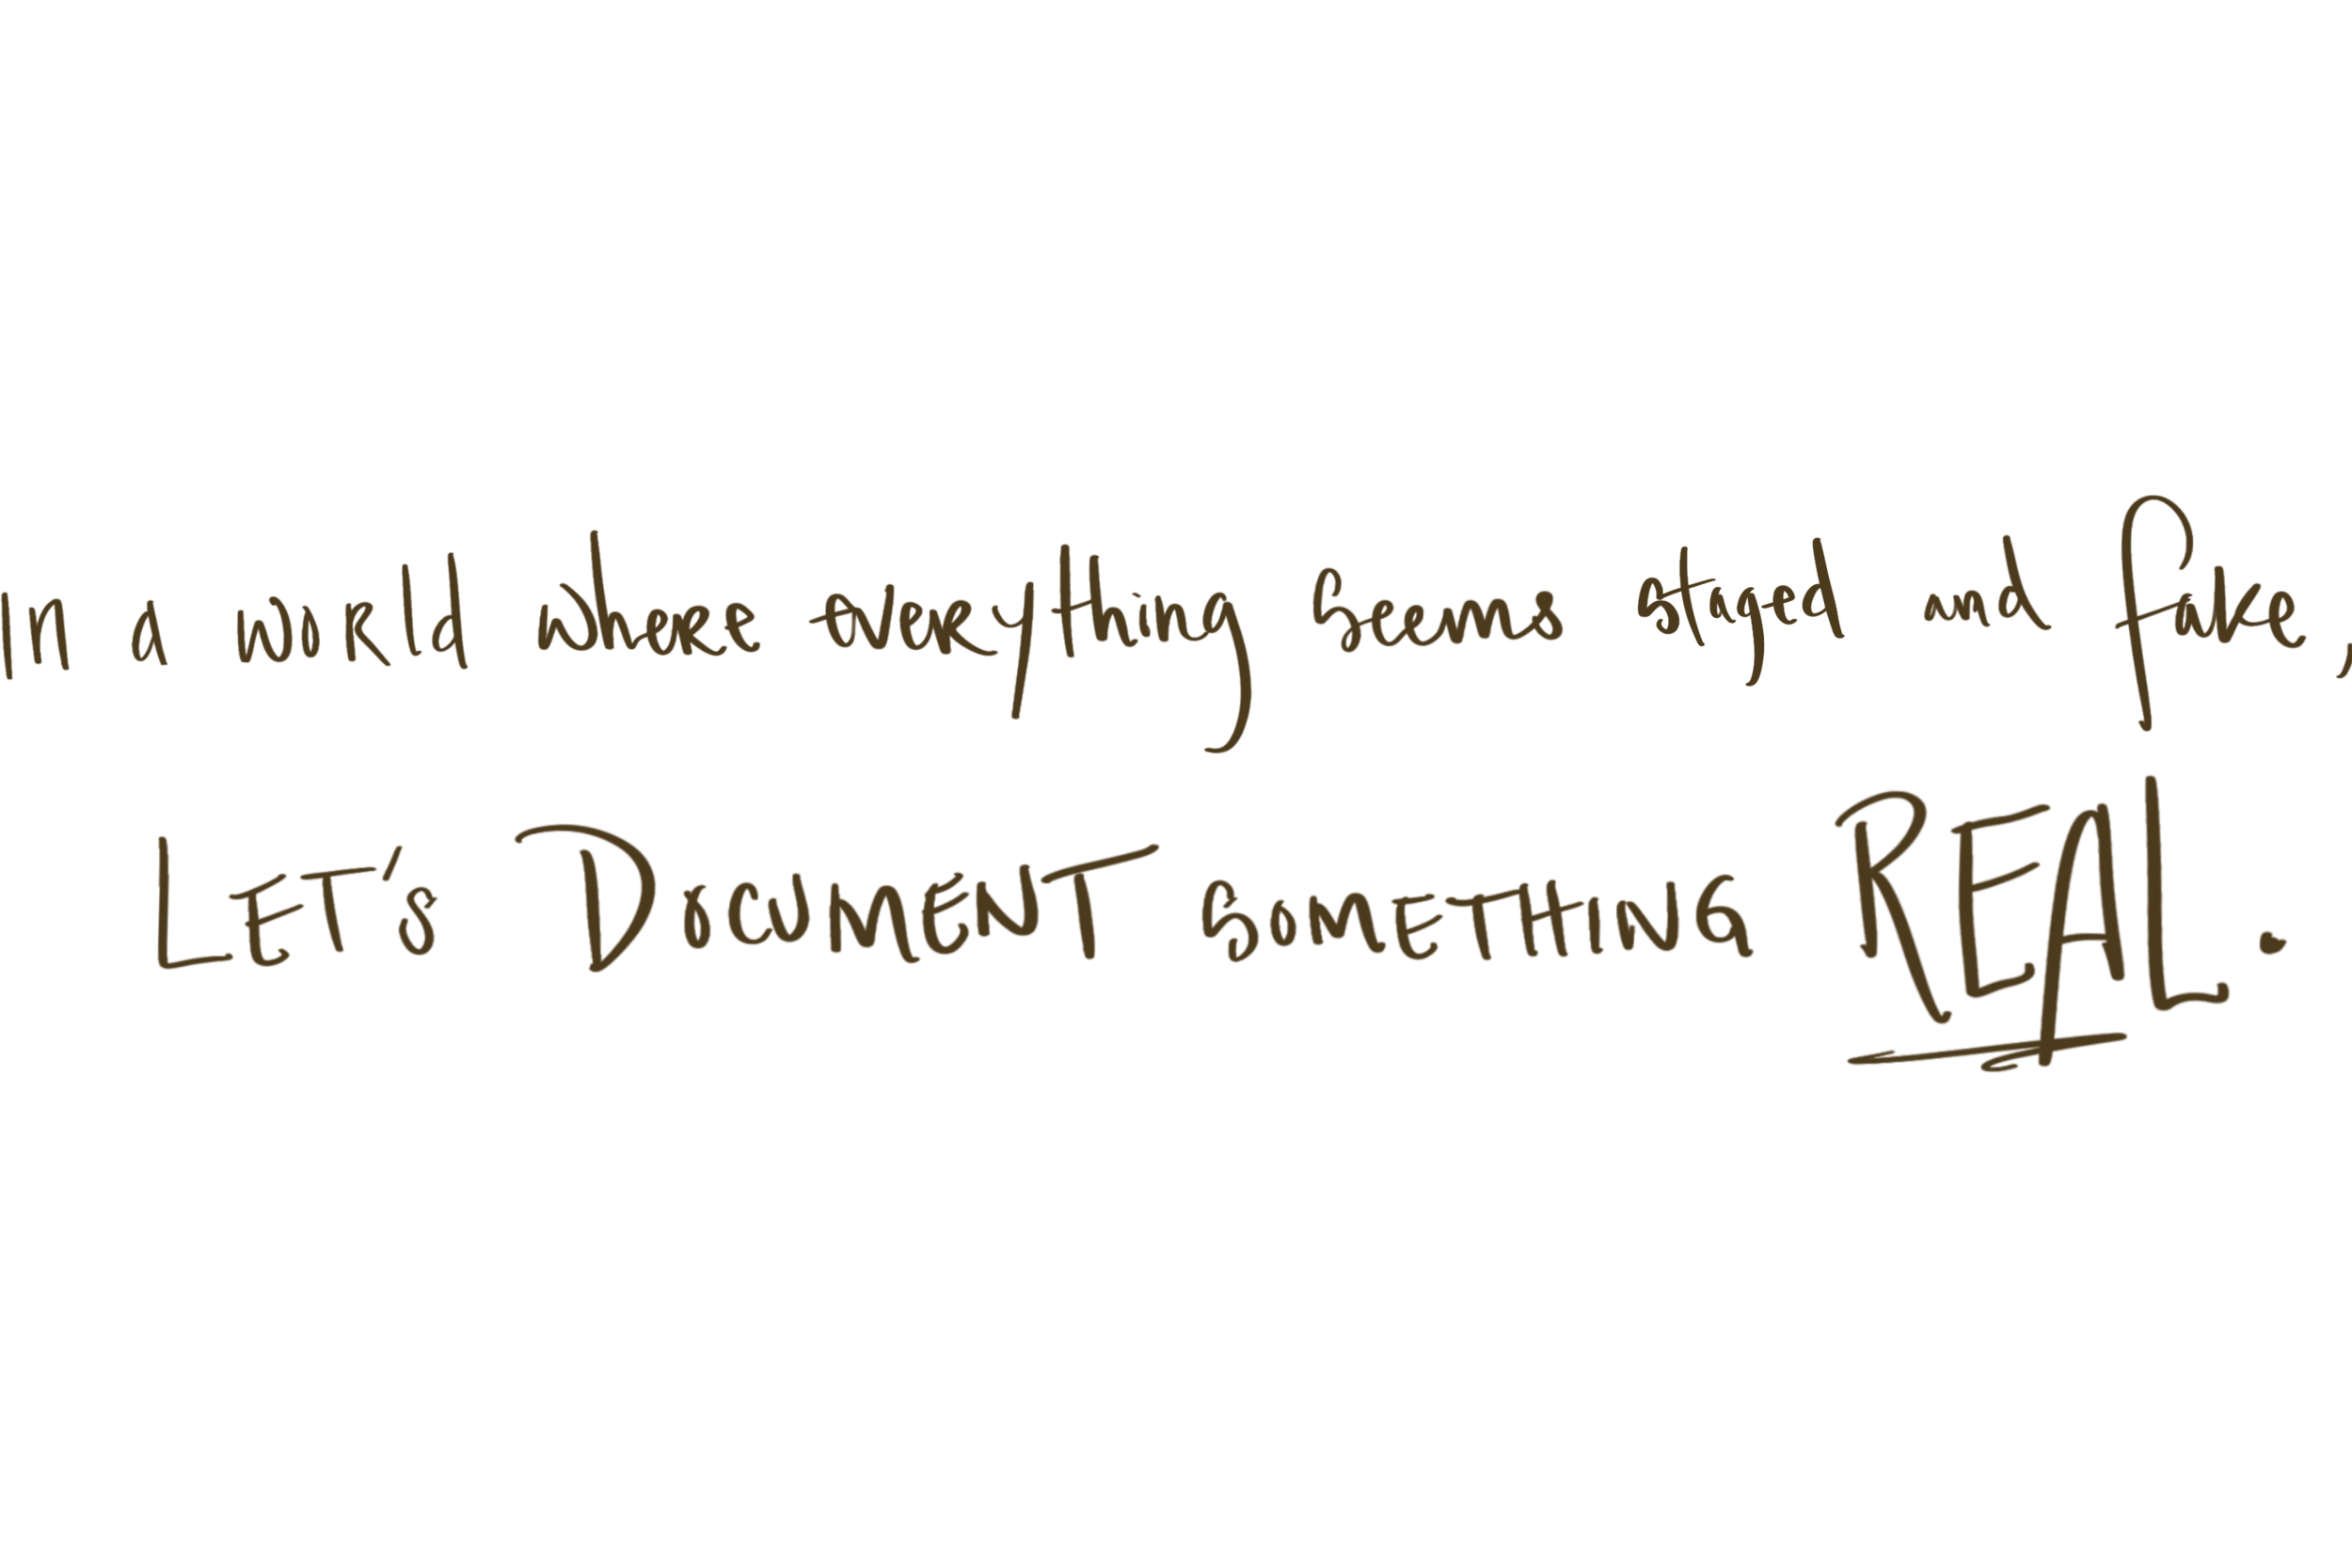 In a world where everything seems staged and fake,
LET'S DOCUMENT SOMETHING REAL.